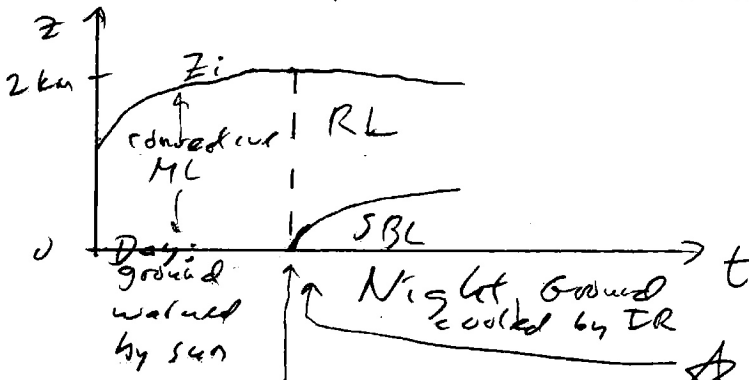 Z
2 km
Zi
RL
convective
ML
SBL
0
t
Day:
ground
warmed
by sun
Night, Ground
cooled by IR
A